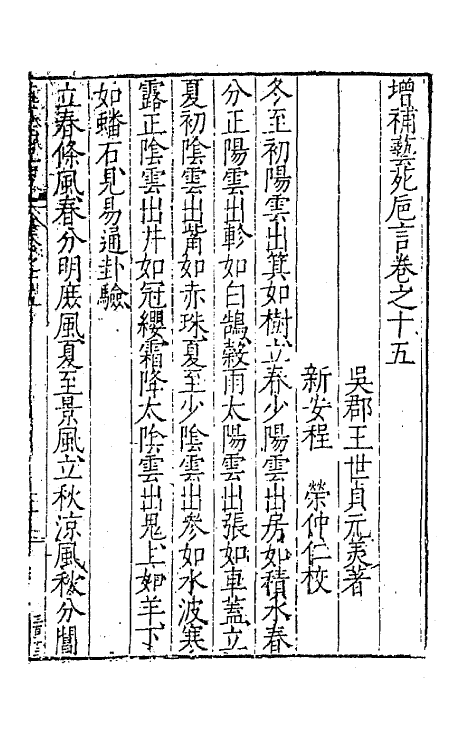 增補藝苑巵言卷之十五
吳郡王世貞元美著
新安程　榮仲仁校
冬至初陽雲出箕如樹立春少陽雲出房如積水春
分正陽雲出軫如白鵠穀雨太陽雲出張如車蓋立
夏初陰雲出觜如赤珠夏至少陰雲出參如水波寒
露正陰雲出井如冠纓霜降太陰雲出鬼上如羊下
如蟠石見易通卦驗
立春條風春分明庶風夏至景風立秋涼風秋分閶